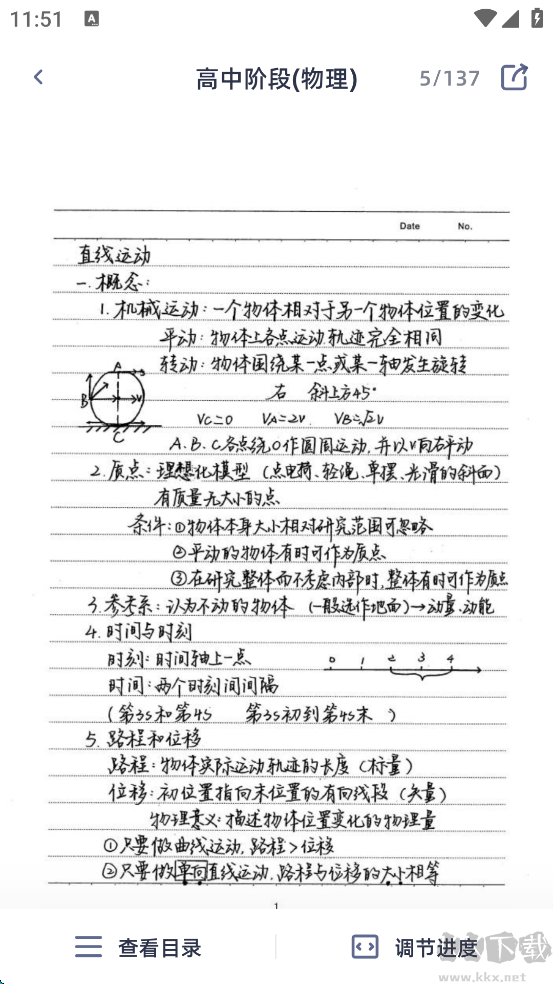 11:51 A
高中阶段(物理) 5/137
Date No.
直线运动
一.概念:
1. 机械运动:一个物体相对于另一个物体位置的变化
平动:物体上各点运动轨迹完全相同
转动:物体围绕某一点或某一轴发生旋转
右 斜上方45°
A
B
v
C
Vc=0 VA=2V VB=√2V
A.B.C各点绕O作圆周运动,并以V向右平动
2.质点:理想化模型 (点电荷、轻绳、单摆、光滑的斜面)
有质量无大小的点
条件:①物体本身大小相对研究范围可忽略
②平动的物体有时可作为质点
③在研究整体而不考虑内部时,整体有时可作为质点
3.参考系:认为不动的物体 (一般选作地面)→动量、动能
4.时间与时刻
时刻:时间轴上一点
0 1 2 3 4
时间:两个时刻间间隔
(第3s和第4s 第3s初到第4s末 )
5.路程和位移
路程:物体实际运动轨迹的长度(标量)
位移:初位置指向末位置的有向线段(矢量)
物理意义:描述物体位置变化的物理量
①只要做曲线运动,路程>位移
②只要做单向直线运动,路程与位移的大小相等
1
查看目录 调节进度
下载
www.kkx.net